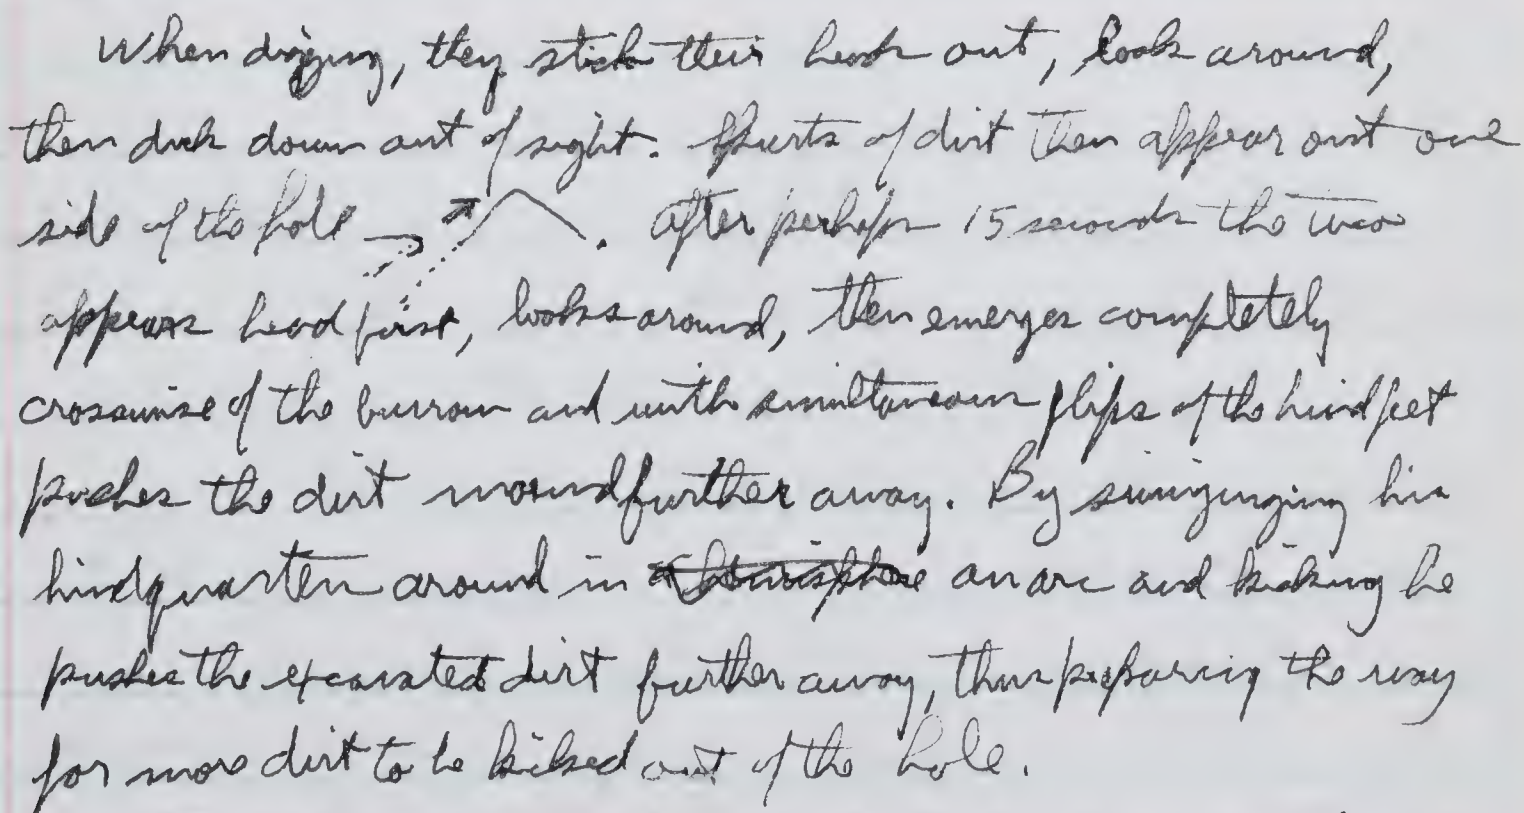 When digging, they stick their heads out, look around,
then duck down out of sight. Spurts of dirt then appear out one
side of the hole . After perhaps 15 seconds the tuco
appears head first, looks around, then emerges completely
crosswise of the burrow and with simultaneous flips of the hind feet
pushes the dirt mound further away. By swinginging his
hindquarters around in a hemisphere an arc and kicking he
pushes the excavated dirt further away, thus preparing the way
for more dirt to be kicked out of the hole.